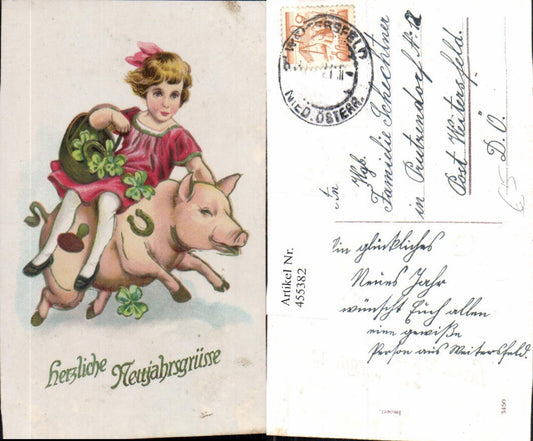 Herzliche Neujahrsgrüsse
WEITERSFELD
NIED. ÖSTERR.
An
Familie Schechtner
in
Post Weitersfeld.
N. Ö.
Artikel Nr.
455382
Ein glückliches
Neues Jahr
wünscht Euch allen
eine gewiße
Person aus Weitersfeld.
Import.
3450